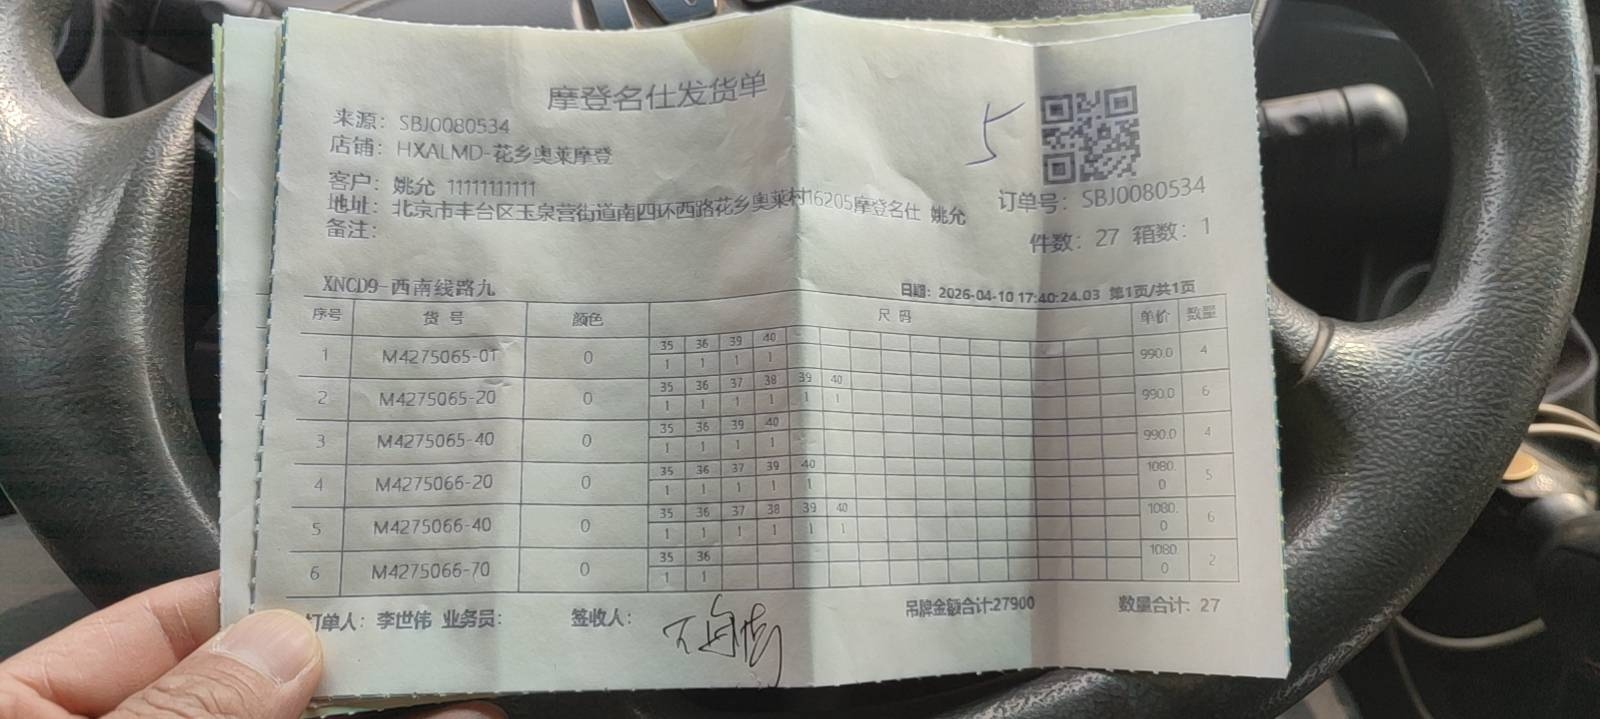 摩登名仕发货单
5
来源：SBJ0080534
店铺：HXALMD-花乡奥莱摩登
客户：姚允 11111111111
地址：北京市丰台区玉泉营街道南四环西路花乡奥莱村16205摩登名仕 姚允
备注：
订单号：SBJ0080534
件数：27 箱数：1
XNCD9-西南线路九
日期：2026-04-10 17:40:24.03 第1页/共1页
序号 货号 颜色 尺码 单价 数量
35 36 39 40
1 M4275065-01 0 1 1 1 1 990.0 4
35 36 37 38 39 40
2 M4275065-20 0 1 1 1 1 1 1 990.0 6
35 36 39 40
3 M4275065-40 0 1 1 1 1 990.0 4
35 36 37 39 40
4 M4275066-20 0 1 1 1 1 1 1080.0 5
35 36 37 38 39 40
5 M4275066-40 0 1 1 1 1 1 1 1080.0 6
35 36
6 M4275066-70 0 1 1 1080.0 2
订单人：李世伟 业务员： 签收人： 吊牌金额合计:27900 数量合计：27